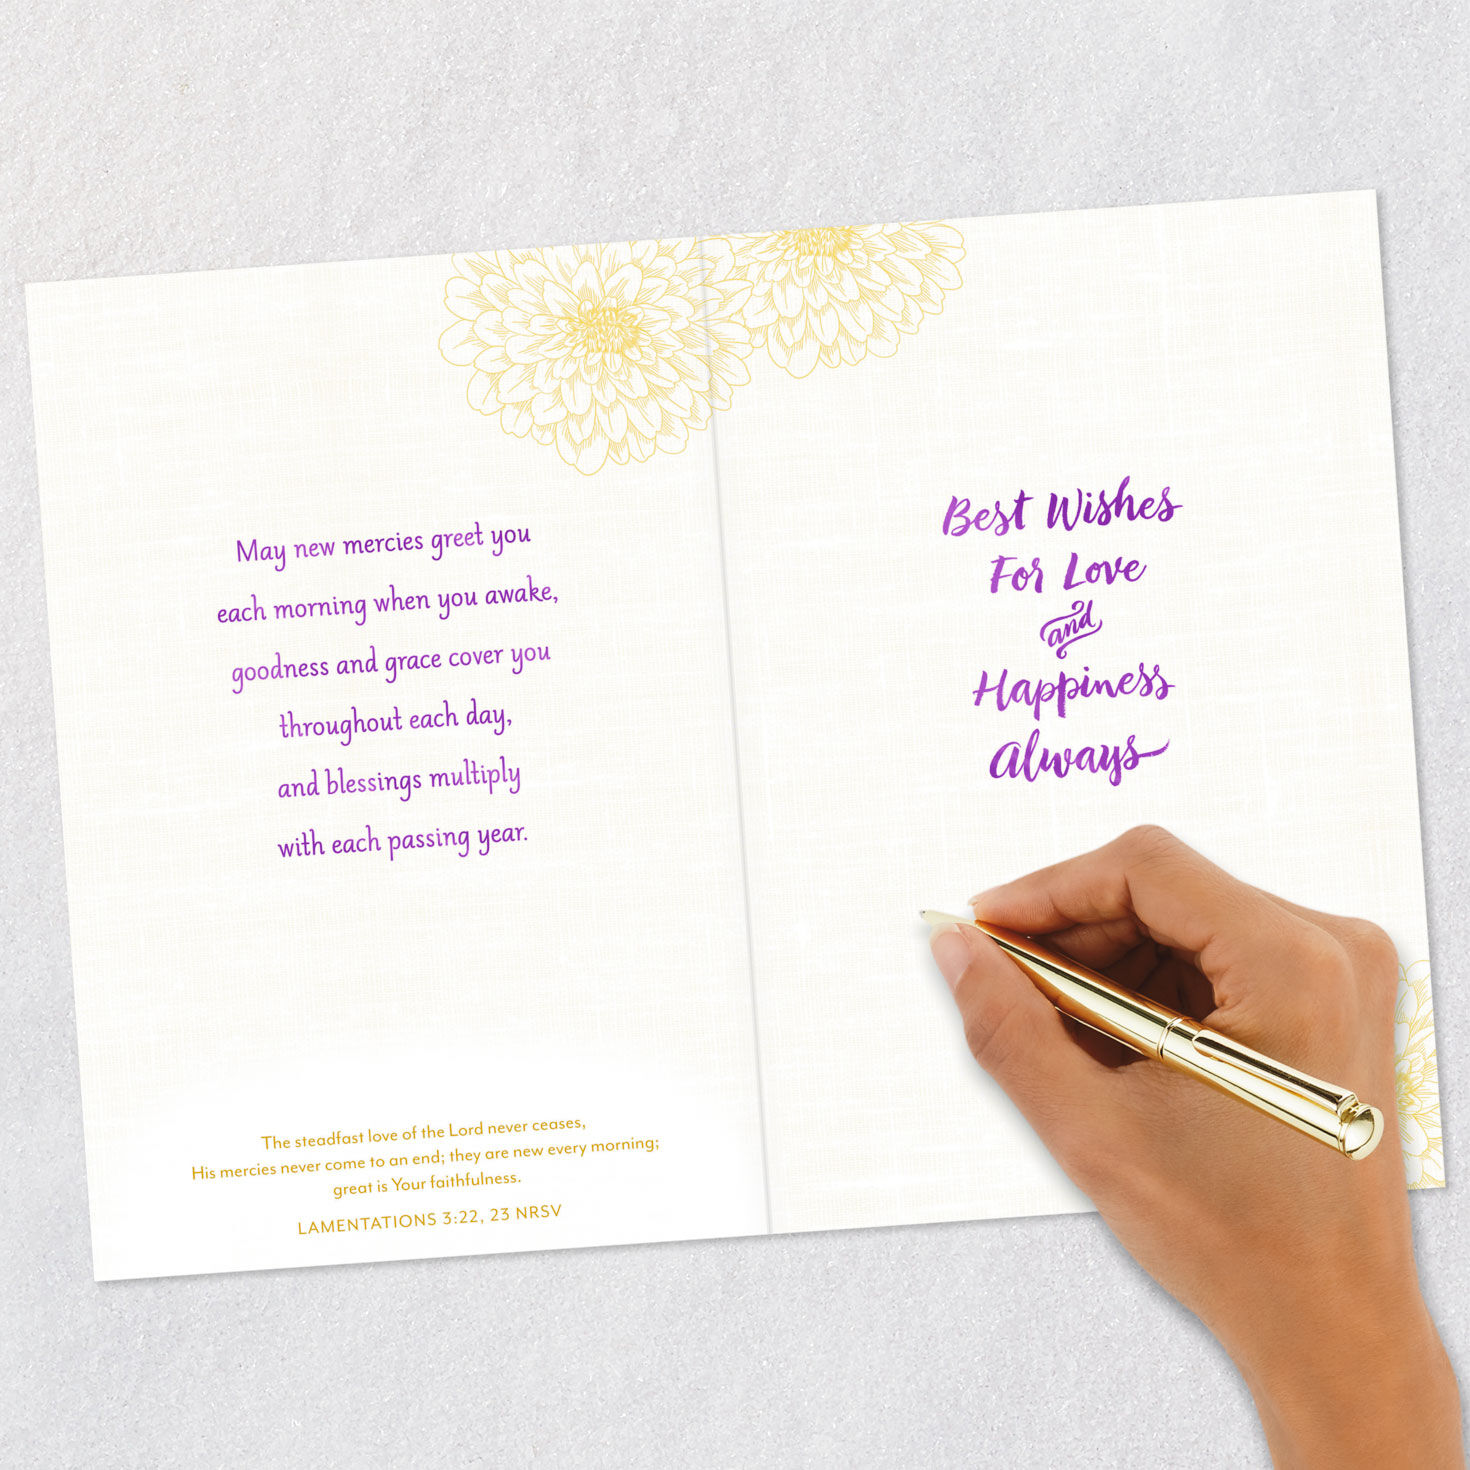 May new mercies greet you
each morning when you awake,
goodness and grace cover you
throughout each day,
and blessings multiply
with each passing year.
The steadfast love of the Lord never ceases,
His mercies never come to an end; they are new every morning;
great is Your faithfulness.
LAMENTATIONS 3:22, 23 NRSV
Best Wishes
For Love
and
Happiness
Always